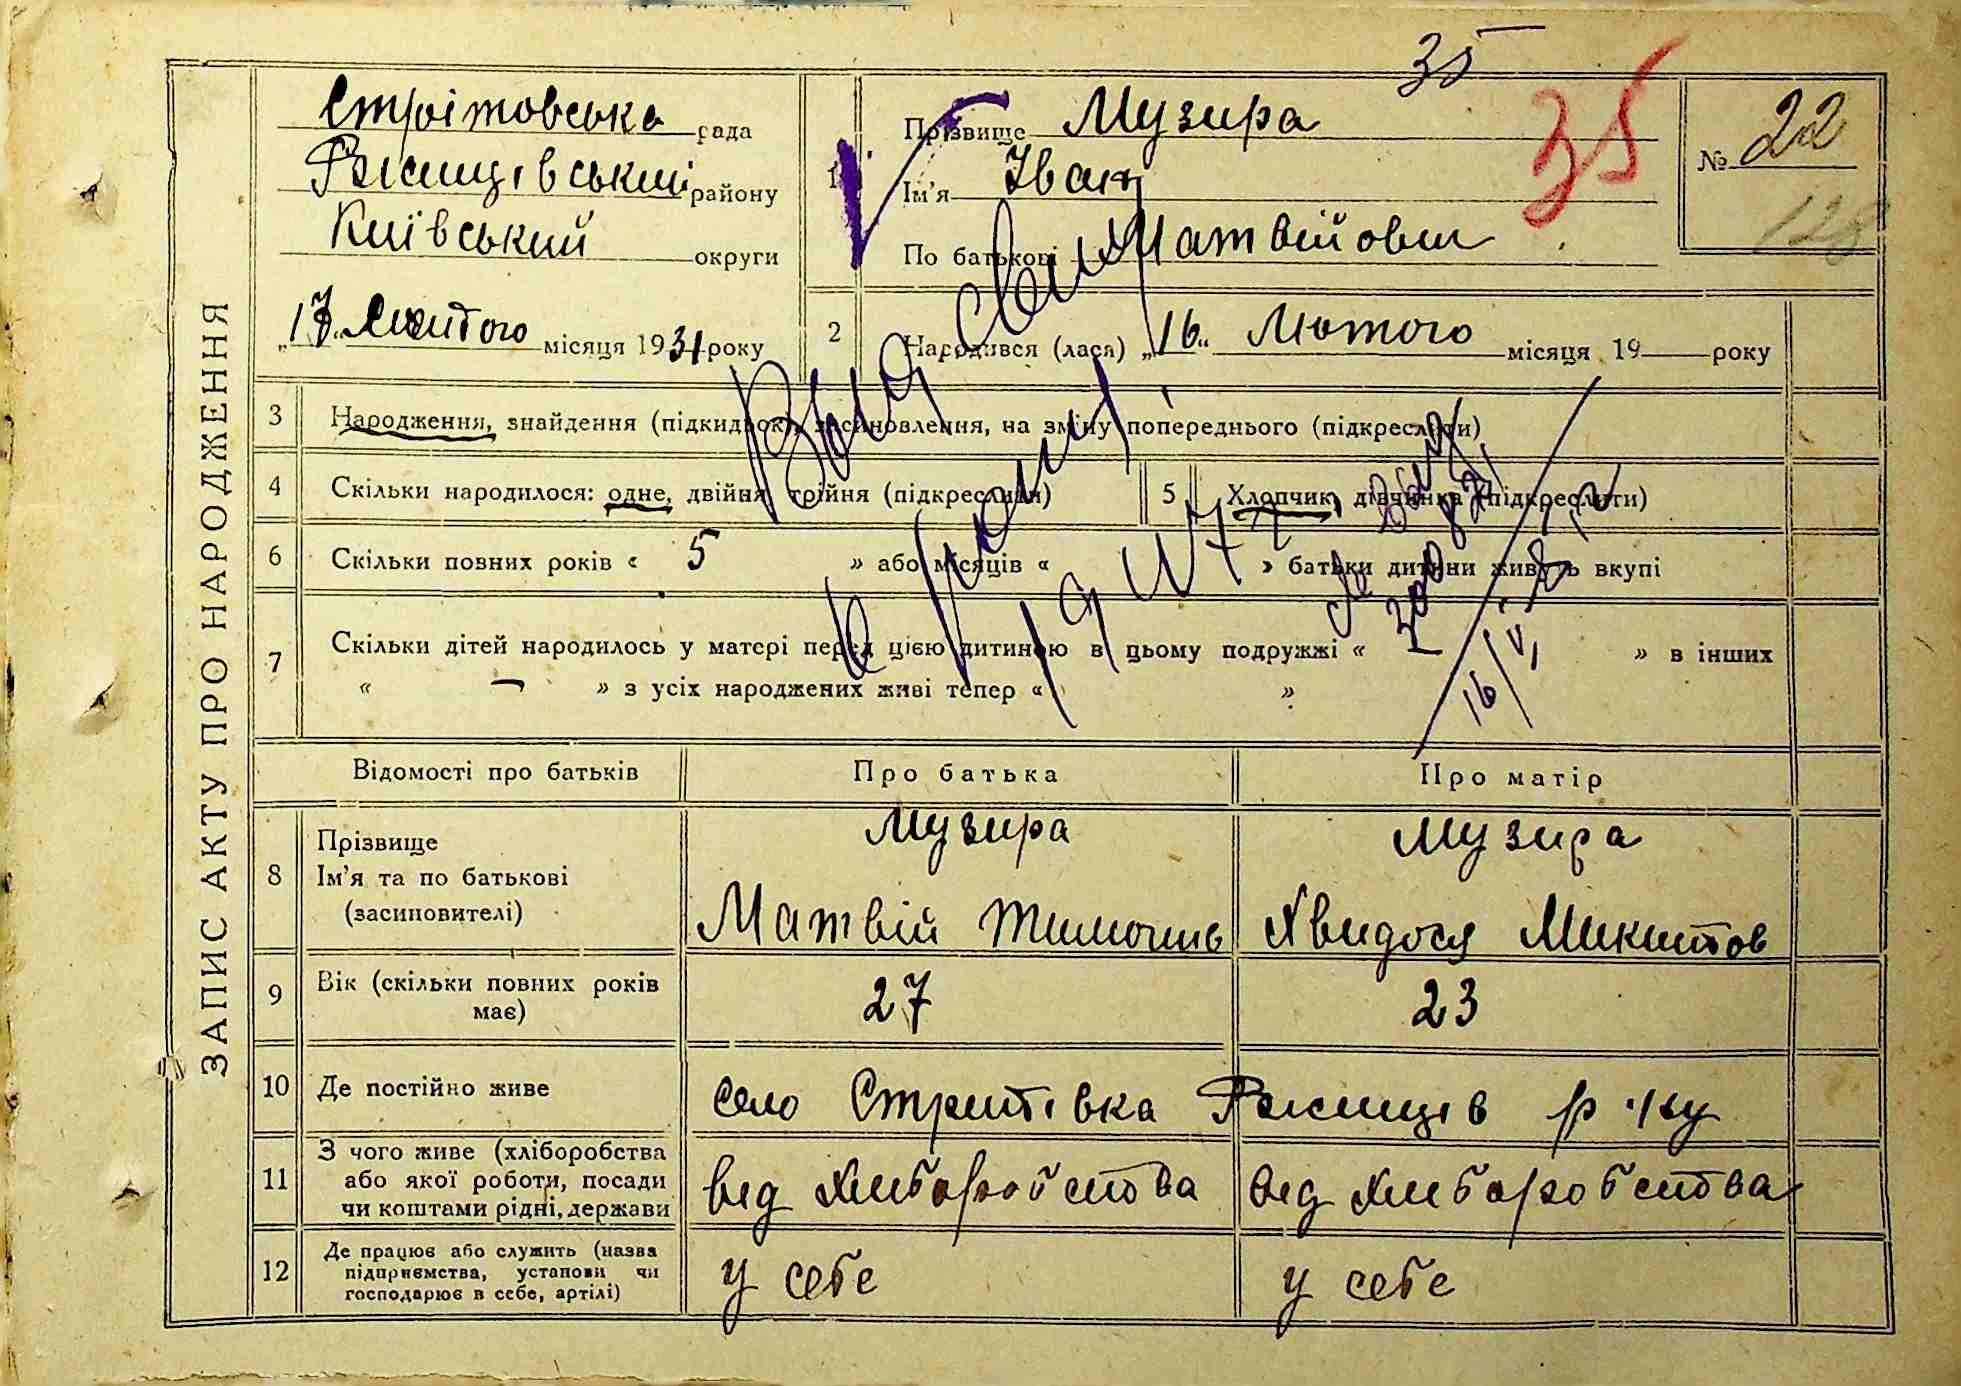 35
35
ЗАПИС АКТУ ПРО НАРОДЖЕННЯ
Стрітовська рада
Ржищівський району
Київський округи
"17" Лютого місяця 1931 року
1 Прізвище Музира
Ім'я Іван
По батькові Матвійови
№ 22
128
2 Народився (лася) "16" Лютого місяця 19 року
3 Народження, знайдення (підкидьок), засиновлення, на зміну попереднього (підкреслити)
4 Скільки народилося: одне, двійня, трійня (підкреслити)
5 Хлопчик, дівчинка (підкреслити)
6 Скільки повних років « 5 » або місяців « » батьки дитини живуть вкупі
7 Скільки дітей народилось у матері перед цією дитиною в цьому подружжі « » в інших
« — » з усіх народжених живі тепер « »
16/V
Відомості про батьків Про батька Про матір
8 Прізвище Музира Музира
Ім'я та по батькові
(засиновителі) Матвій Тимошів Хвидося Микитов
9 Вік (скільки повних років має) 27 23
10 Де постійно живе село Стритівка Ржищів р-ну
11 З чого живе (хліборобства
або якої роботи, посади
чи коштами рідні, держави
вид хлиборобства вид хлиборобства
12 Де працює або служить (назва
підприємства, установи чи
господарює в себе, артілі)
у себе у себе